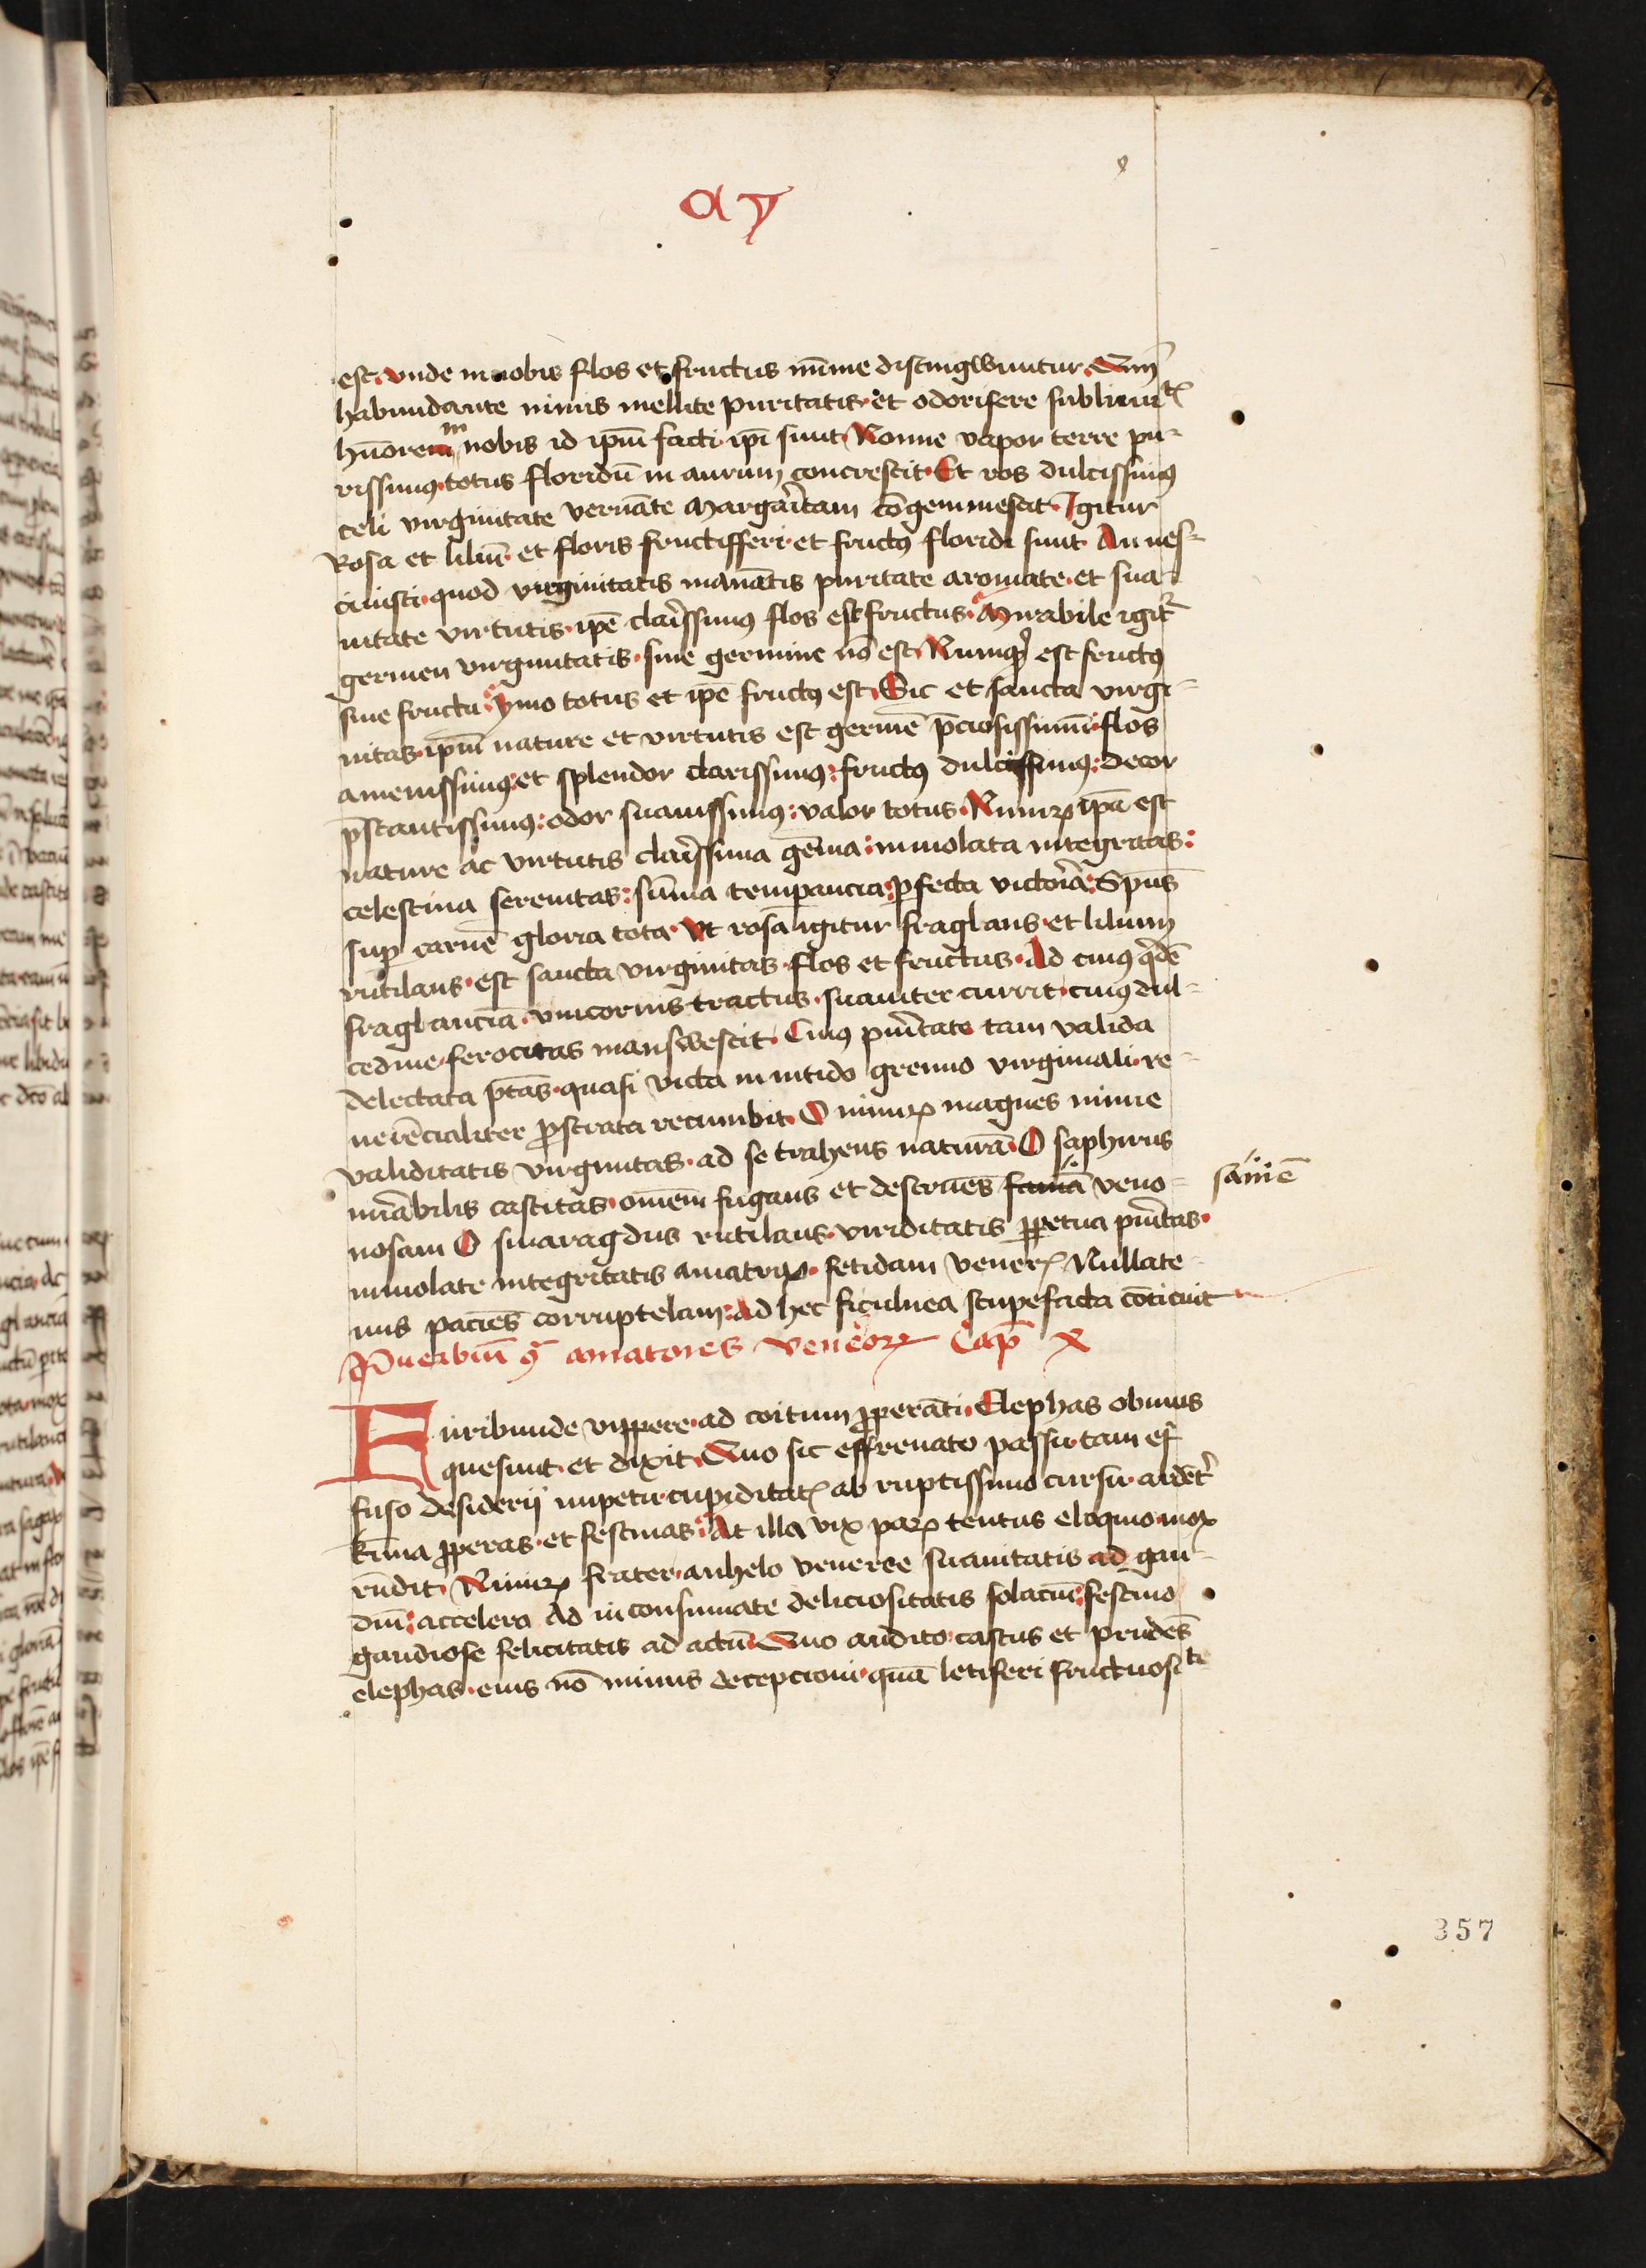 ay
est. vnde in nobis flos et fructus mīme distingwuntur. Qum̄
habundante nimis mellite puritatis. et odorifere sublimitꝭ
hūorem in nobis id ipm̄ facti ipī sunt Nonne vapor terre pu-
rissimꝰ. totus floridū in aurum concrescit. Et ros dulcissimꝰ
celi virginitate vernāte margaritam cōgemmescit. Igitur
Rosa et liliū. et floris fructifferi. et fructꝰ floridi sunt An nes-
ciuisti. quod virginitatis manātis puritate aromate. et sua-
uitate virtutis. ipē clarissimꝰ flos est fructus. Mirabile igit᷑
germen virginitatis. sine germine nō est. Numqᵈ est fructꝰ
sine fructu ymo totus et ipē fructꝰ est. Sic et sancta virgi-
nitas. ipm̄ nature et virtutis est germē p̄ciosissimū. flos
amenissimꝰ. et splendor clarissimꝰ: fructꝰ dulcissimꝰ: decor
p̄stantissimꝰ: odor suauissimus: valor totus. Nimiꝝ ipā est
nature ac virtutis clarissima gēma: inuiolata integritas:
celestina serenitas: sūma temperancia: ꝑfecta victoria: Spūs
suꝑ carnē gloria tota. Vt rosa igitur fraglans. et lilium
rutilans. est sancta virginitas. flos et fructus. Ad cuiꝰ qͥdē
fraglancia. vnicornis tractus. suauiter currit. cuiꝰ dul-
cedine. ferocitas manswescit. Cuiꝰ puritate tam valida
delectata ptās. quasi victa in nitido gremio virginali. re-
uerēcialiter ꝓstrata recumbit. O nimiꝝ magnes mire
validitatis virginitas. ad se trahens naturā. O saphirus
mirabilis castitas. omēm fugans et destruēs famā veno-
saniē
nosam O smaragdus rutilans. viriditatis ꝑpetua puritas.
inuiolate integritatis amatrix. fetidam venerꝭ Nullate-
nus paciēs corruptelam: Ad hec ficulnea stupefacta cōticuit
Puerbiū ꝯ amatores veneoꝝ Cap̄ x
Furibunde vippere. ad coitum ꝓperāti. Elephas obuius
quesiuit. et dixit. Quo sic effrenato passu. tam ef-
fuso desiderij impetu. cupiditatꝭ ab ruptissimo cursu. ardēt᷑
kīma ꝓperas. et festinas. At illa vix paꝝ tentus eloquio mox
rn̄dit. Nimiꝝ frater. anhelo veneree suauitatis ad gau-
diū: accelero Ad inconsumate deliciositatis solaciū: festino
gaudiose felicitatis ad actū. Quo audito. castus et prudēs
elephas. eius nō minus decepcioni. quā letiferi fructuosiᵗᵉ
357